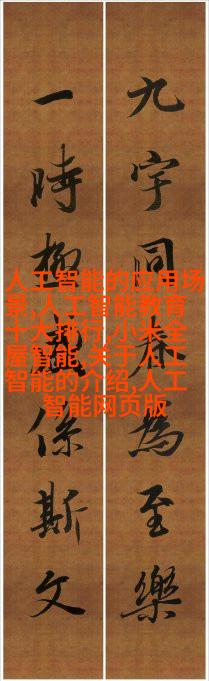 九宇同春為至樂
一時極係斯文
人工智能的应用场
景,人工智能教育
十大排行,小米全
屋智能,关于人工
智能的介绍,人工
智能网页版